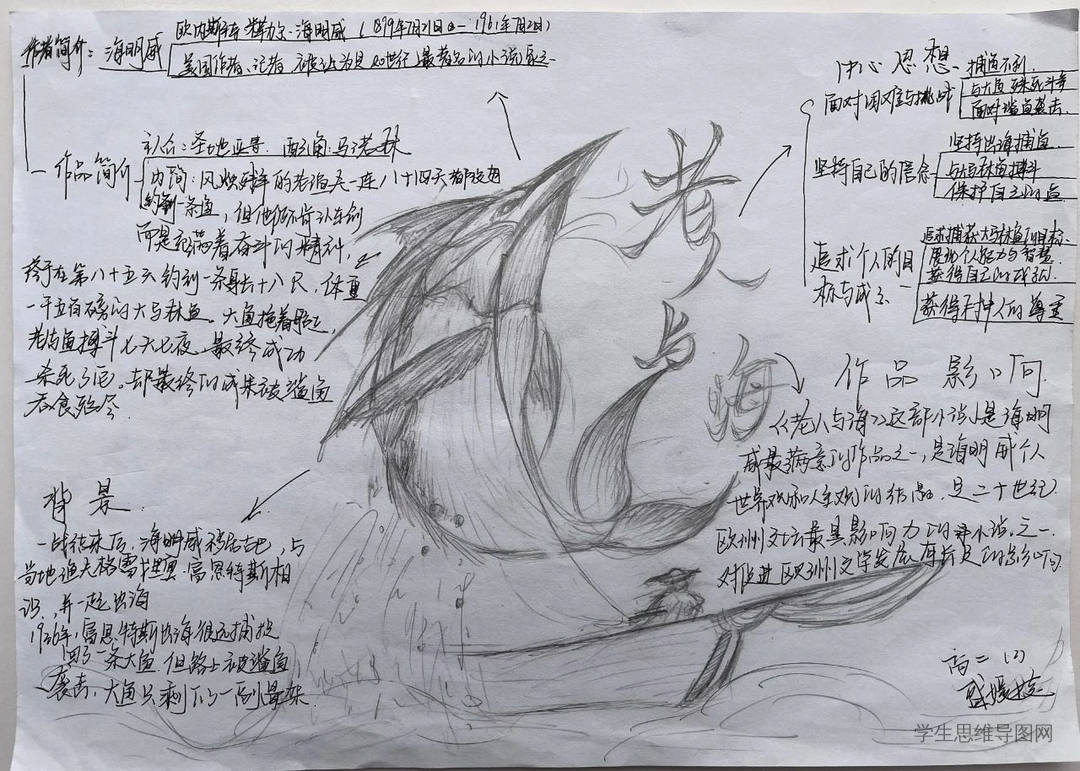 作者简介：海明威
欧内斯特·米勒尔·海明威（1899年7月21日—1961年7月2日）
美国作者、记者，被认为是20世纪最著名的小说家之一
作品简介
主人公：圣地亚哥 配角：马诺林
内容：风烛残年的老渔夫一连八十四天都没有
钓到一条鱼，但他仍不肯认输
而是充满着奋斗的精神，
终于在第八十五天钓到一条身长十八尺，体重
一千五百磅的大马林鱼。大鱼拖着船走，
老与鱼搏斗七天七夜，最终成功
杀死了它。却最终的成果被鲨鱼
吞食殆尽
背景
一战结束后，海明威移居古巴，与
当地渔夫格雷戈里·富恩特斯相
识，并一起出海
1936年，富恩特斯出海很远捕捉
到了一条大鱼 但路上被鲨鱼
袭击，大鱼只剩下了一副骨架
老人与海
中心思想
面对困难与挑战
捕鱼不利
与大鱼殊死斗争
面对鲨鱼袭击
坚持自己的信念
坚持出海捕鱼
与大马林鱼搏斗
保护自己的鱼
追求个人的目
标与成就
追求捕获大马林鱼的目标
展现个人能力与智慧
获得自己的成就
获得于他人的尊重
作品影响
《老人与海》这部小说是海明
威最满意的作品之一，是海明威个人
世界观和人生观的结晶，是二十世纪
欧洲文坛最具影响力的小说之一
对促进欧洲文学发展有历史的影响
高二（7）
盛媛
学生思维导图网